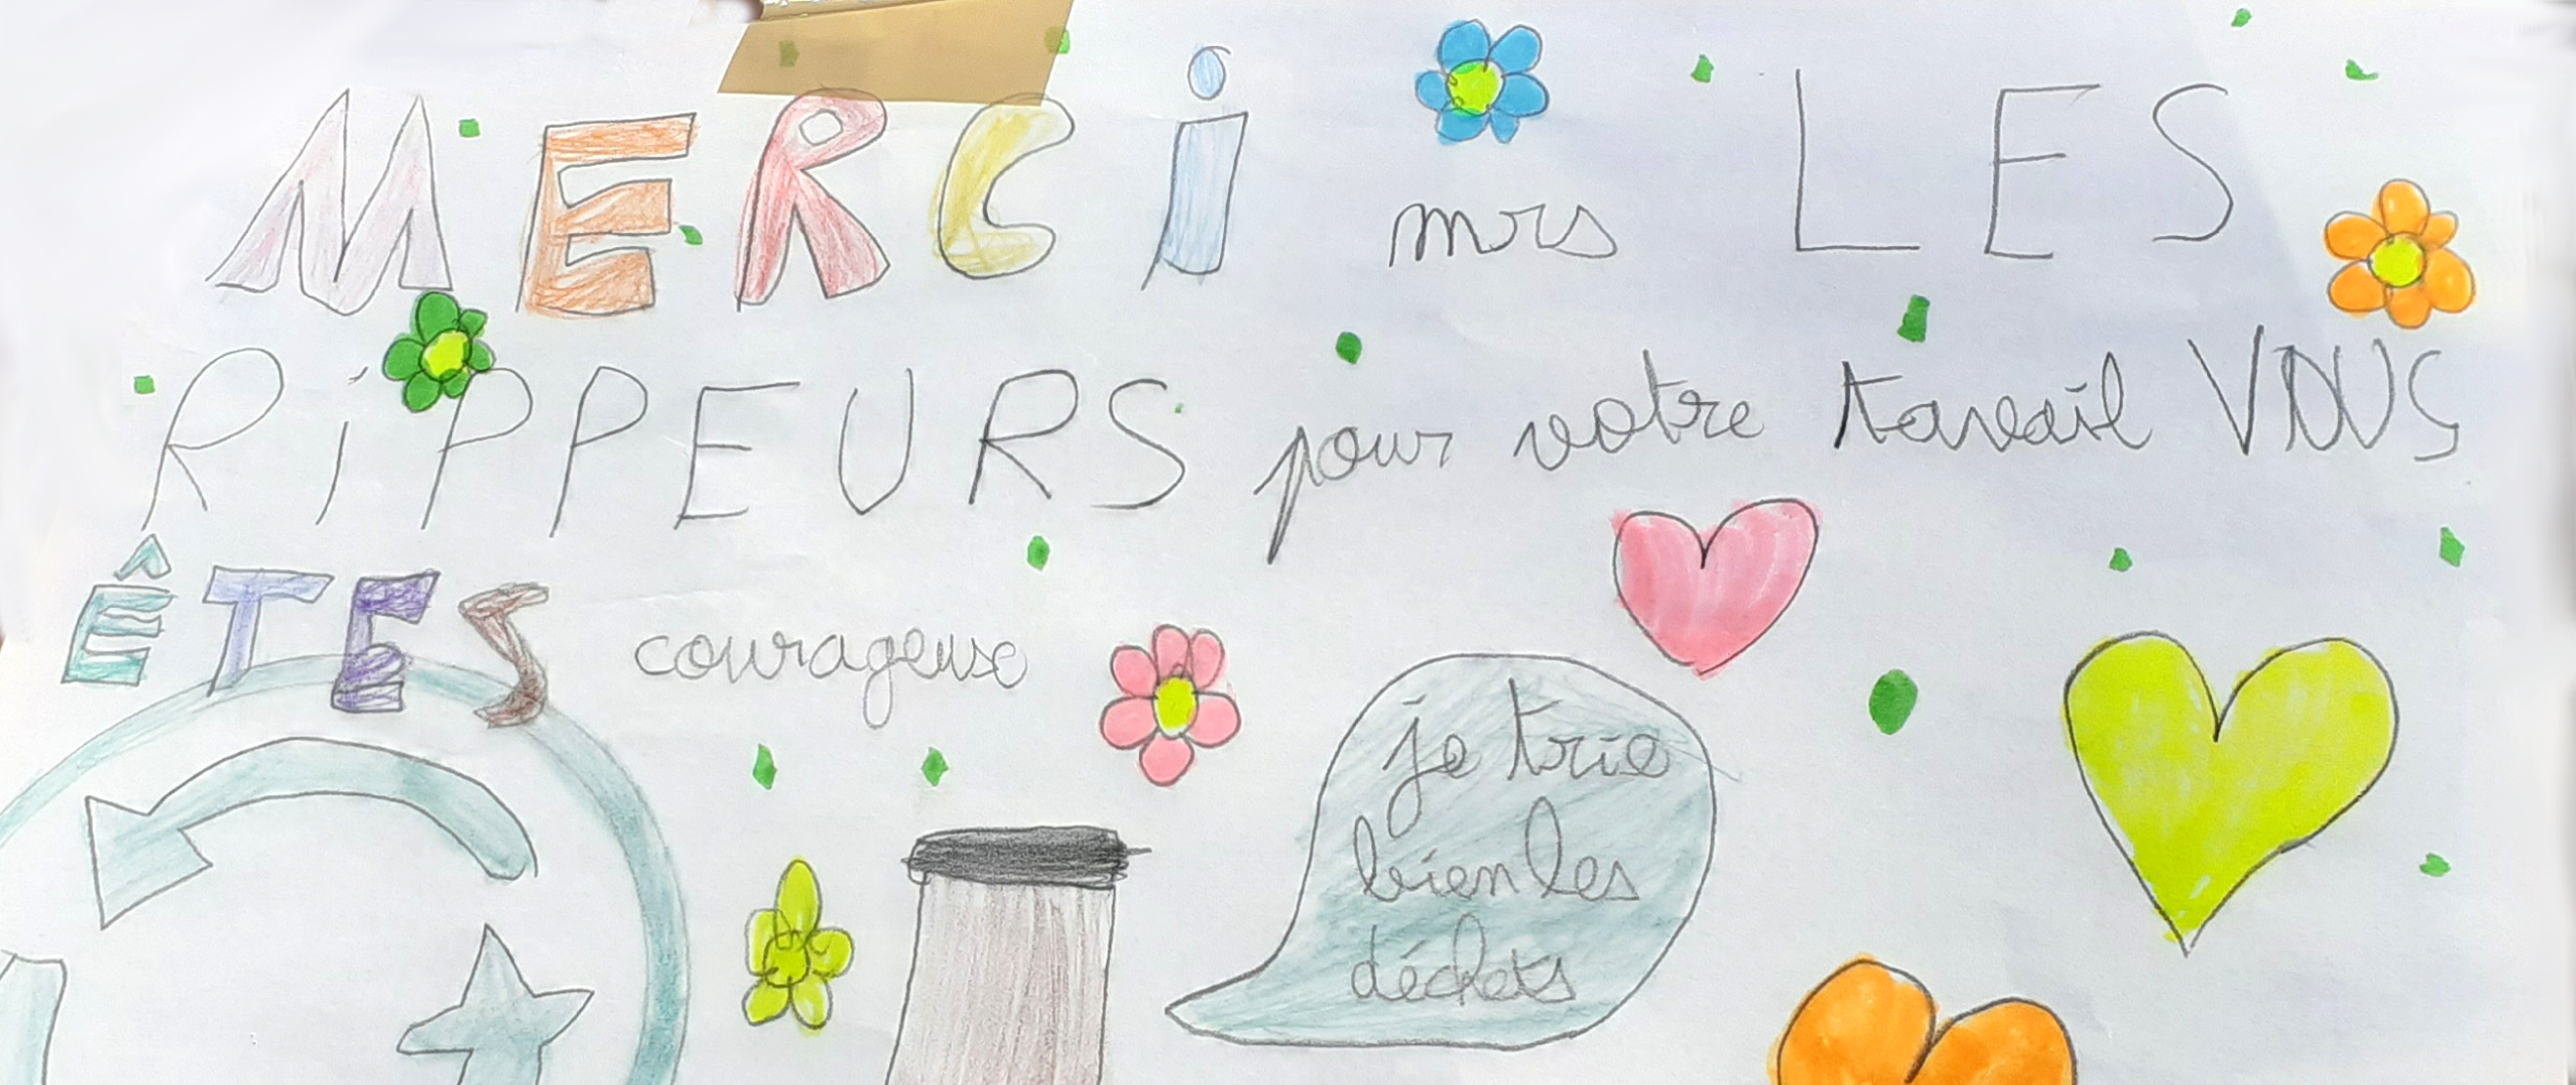 MERCi mrs LES
RiPPEURS pour votre travail VOUS
ÊTES courageuse
je trie
bien les
déchets